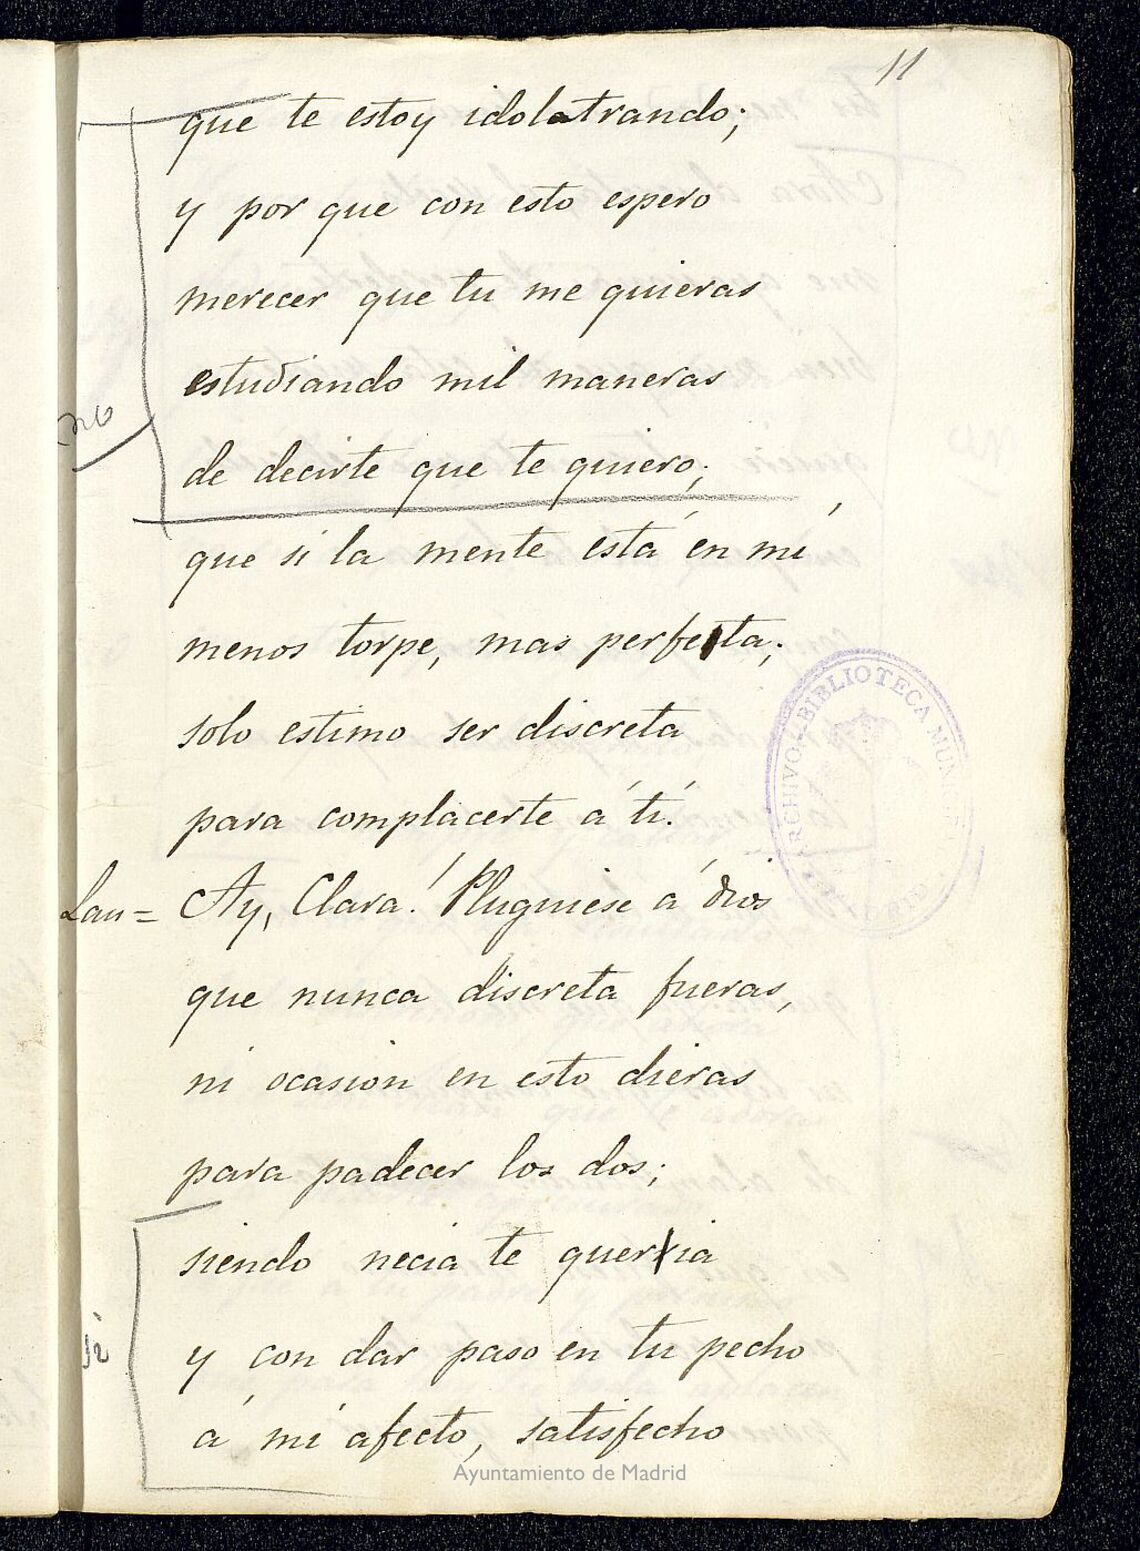 11
que te estoy idolatrando;
y por que con esto espero
merecer que tu me quieras
estudiando mil maneras
no
de decirte que te quiero;
que si la mente está en mí
menos torpe, mas perfecta;
solo estimo ser discreta
para complacerte á tí.
Lau = Ay, Clara! Pluguiese á dios
que nunca discreta fueras,
ni ocasion en esto dieras
para padecer los dos;
siendo necia te querria
sí
y con dar paso en tu pecho
á mi afecto, satisfecho
ARCHIVO-BIBLIOTECA MUNICIPAL
MADRID
Ayuntamiento de Madrid